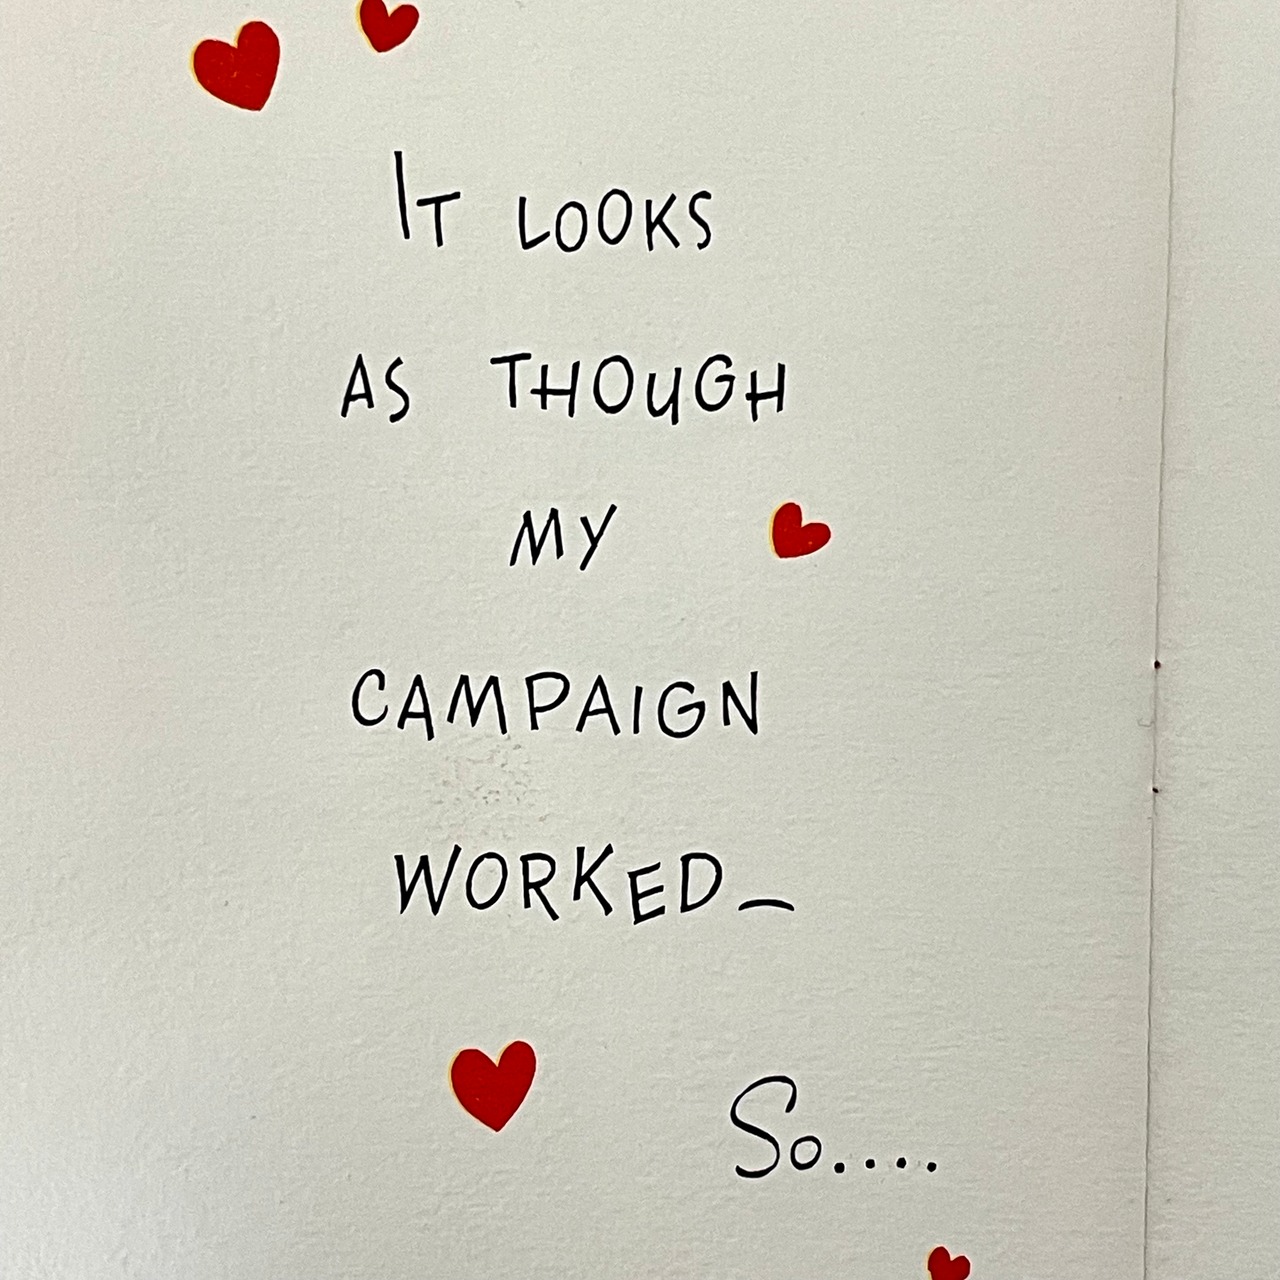 It LOOKS
AS THOUGH
MY
CAMPAIGN
WORKED_
So....